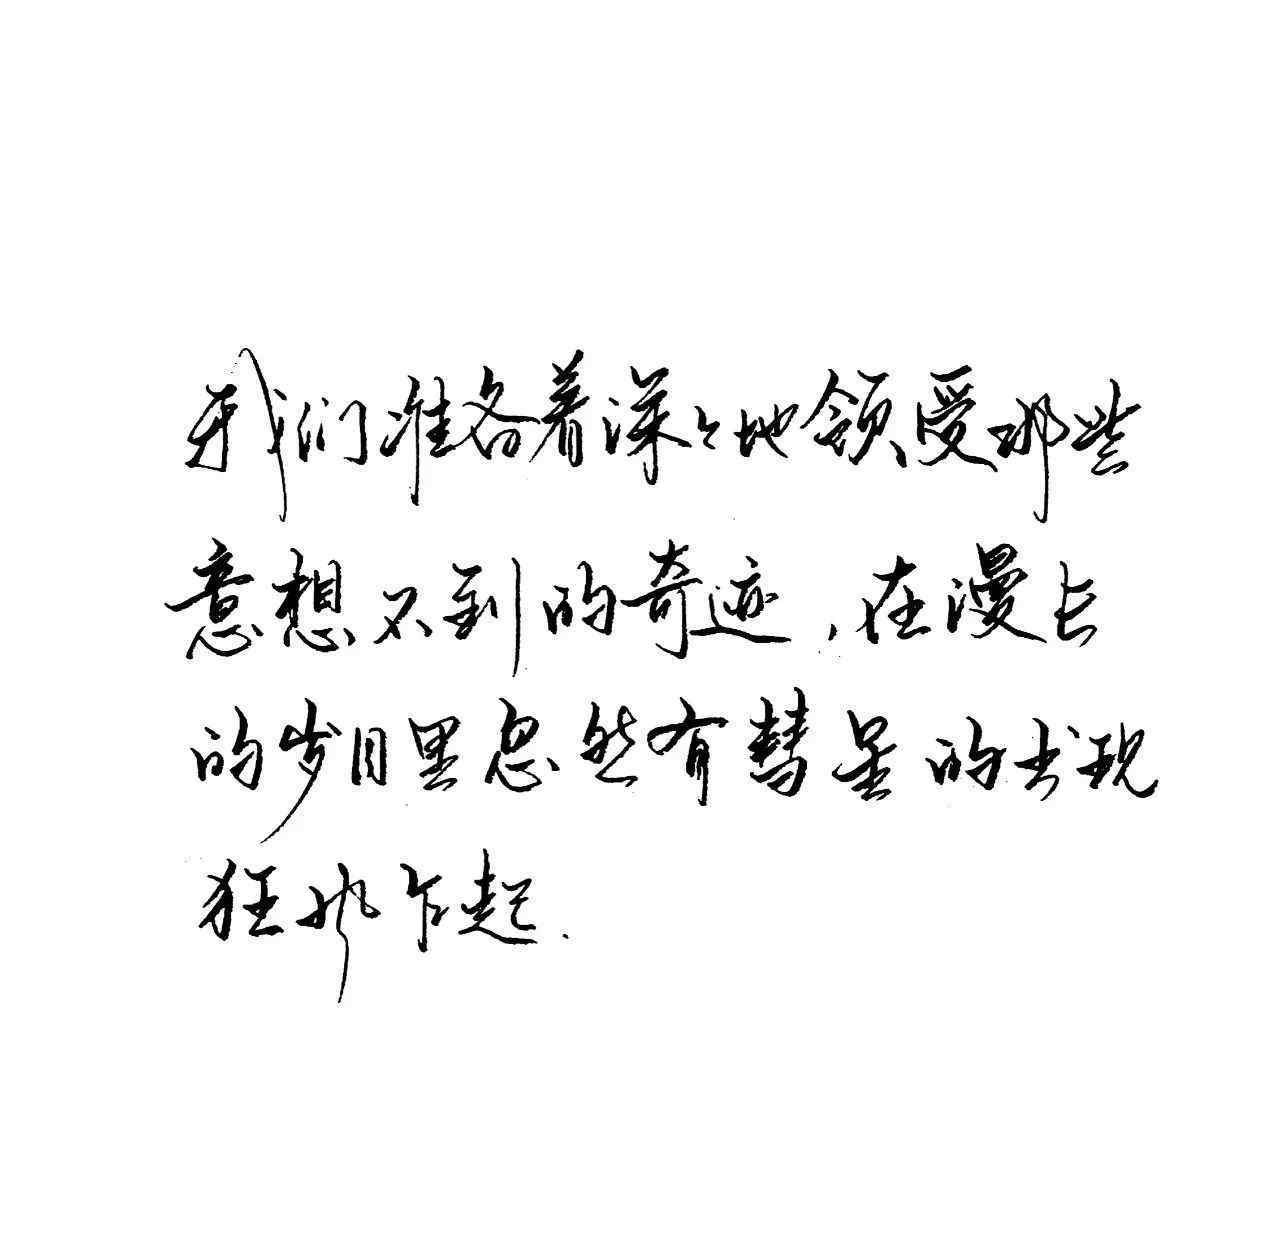 我们准备着深々地领受那些
意想不到的奇迹,在漫长
的岁月里忽然有彗星的出现
狂风乍起.